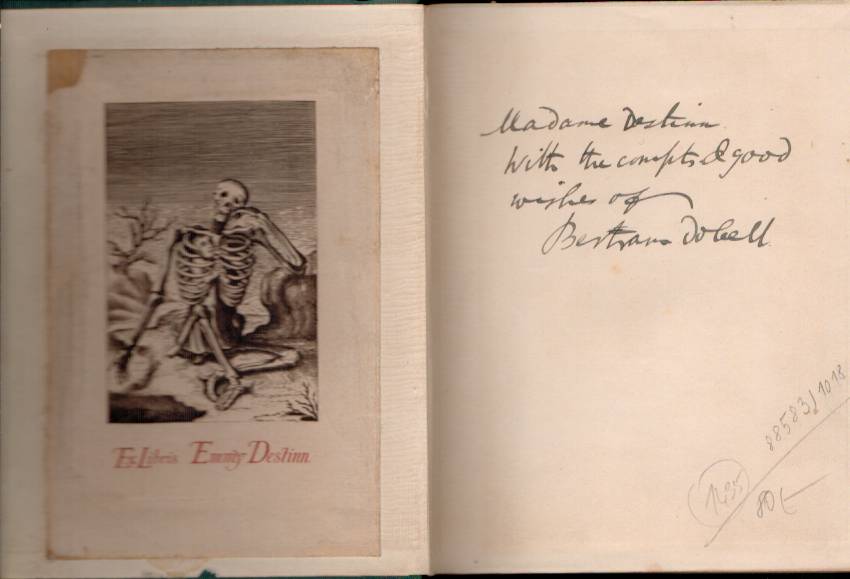 Ex Libris Emmy Destinn
Madame Destinn
With the compts & good
wishes of
Bertram Dobell
88583/1018
1435
80/-